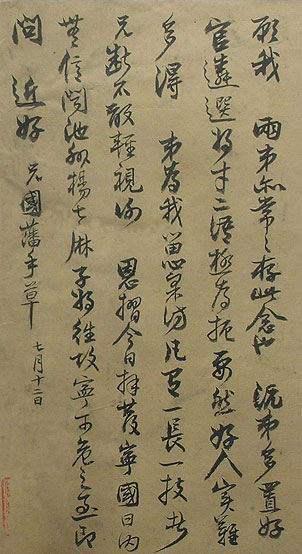 願我 兩弟亦常々存此念也 沅弟多置好
官遴選將才二語極為扼要然好人實難
多得 弟為我留心采訪凡有一長一技者
兄斷不敢輕視謝 恩摺今日拜發寧國日內
無信聞池州楊七麻子將往攻寧可危之至即
問近好 兄國藩手草 七月十二日